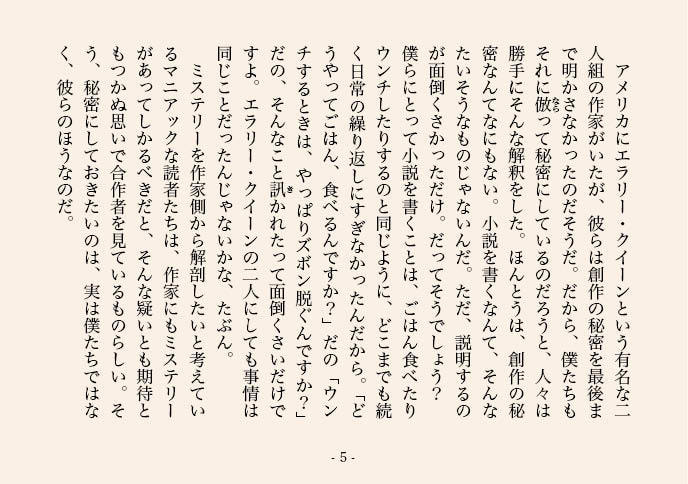 アメリカにエラリー・クイーンという有名な二
人組の作家がいたが、彼らは創作の秘密を最後ま
で明かさなかったのだそうだ。だから、僕たちも
それに倣って秘密にしているのだろうと、人々は
勝手にそんな解釈をした。ほんとうは、創作の秘
密なんてなにもない。小説を書くなんて、そんな
たいそうなものじゃないんだ。ただ、説明するの
が面倒くさかっただけ。だってそうでしょう？
僕らにとって小説を書くことは、ごはん食べたり
ウンチしたりするのと同じように、どこまでも続
く日常の繰り返しにすぎなかったんだから。「ど
うやってごはん、食べるんですか？」だの「ウン
チするときは、やっぱりズボン脱ぐんですか？」
だの、そんなこと訊かれたって面倒くさいだけで
すよ。エラリー・クイーンの二人にしても事情は
同じことだったんじゃないかな、たぶん。
ミステリーを作家側から解剖したいと考えてい
るマニアックな読者たちは、作家にもミステリー
があってしかるべきだと、そんな疑いとも期待と
もつかぬ思いで合作者を見ているものらしい。そ
う、秘密にしておきたいのは、実は僕たちではな
く、彼らのほうなのだ。
- 5 -